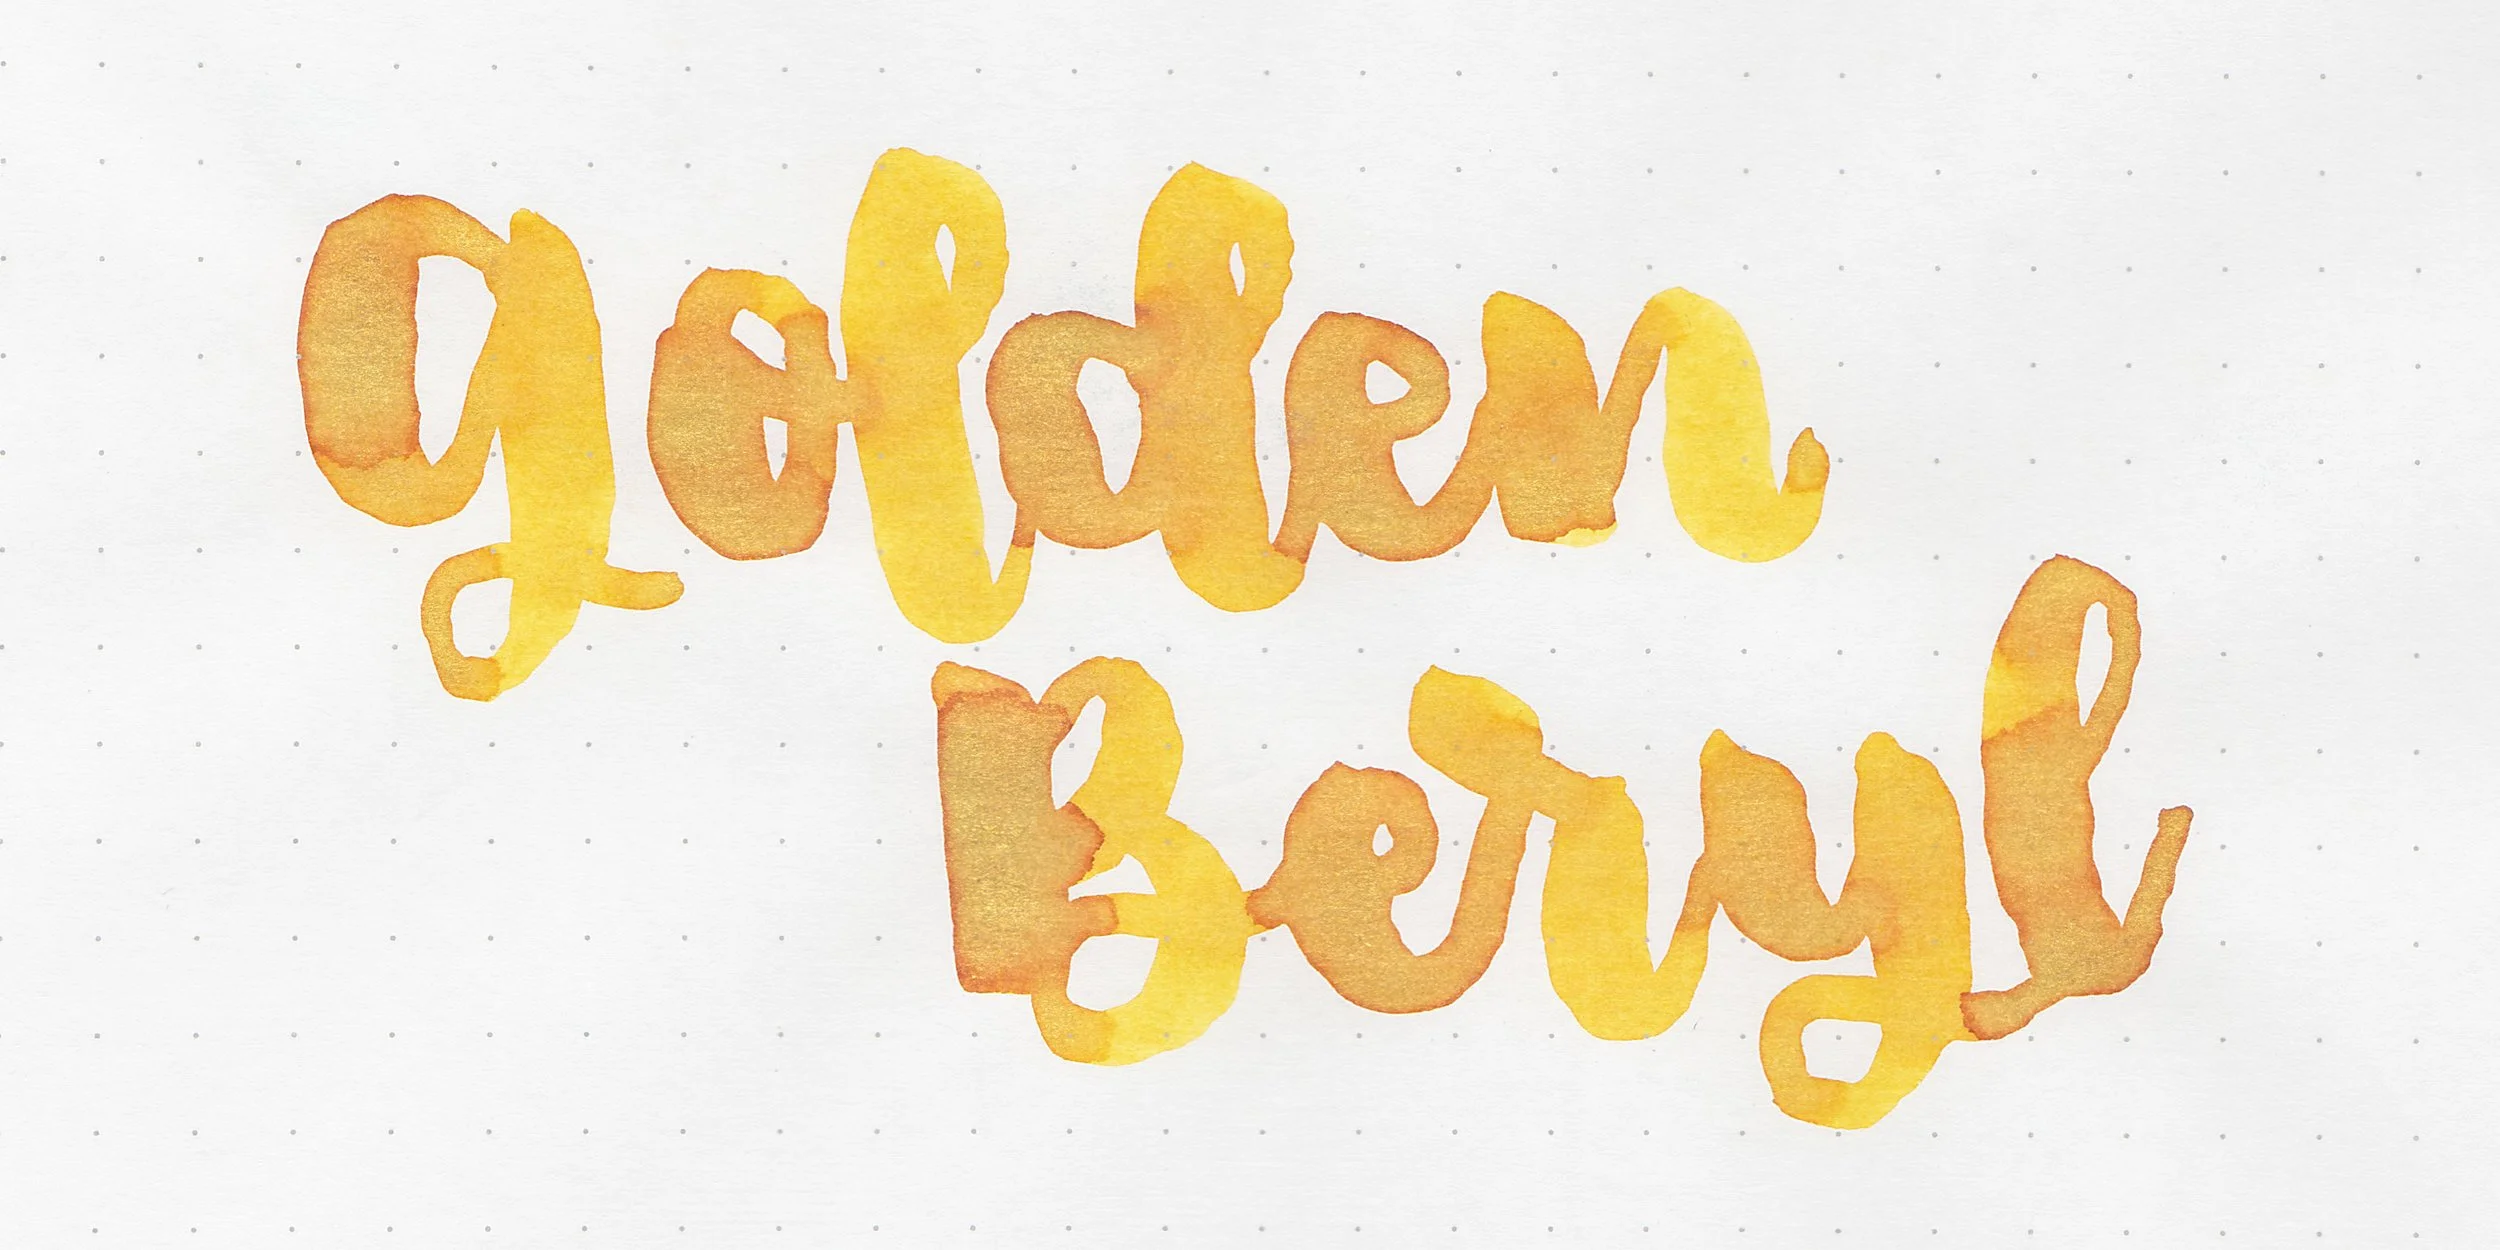 golden
Beryl